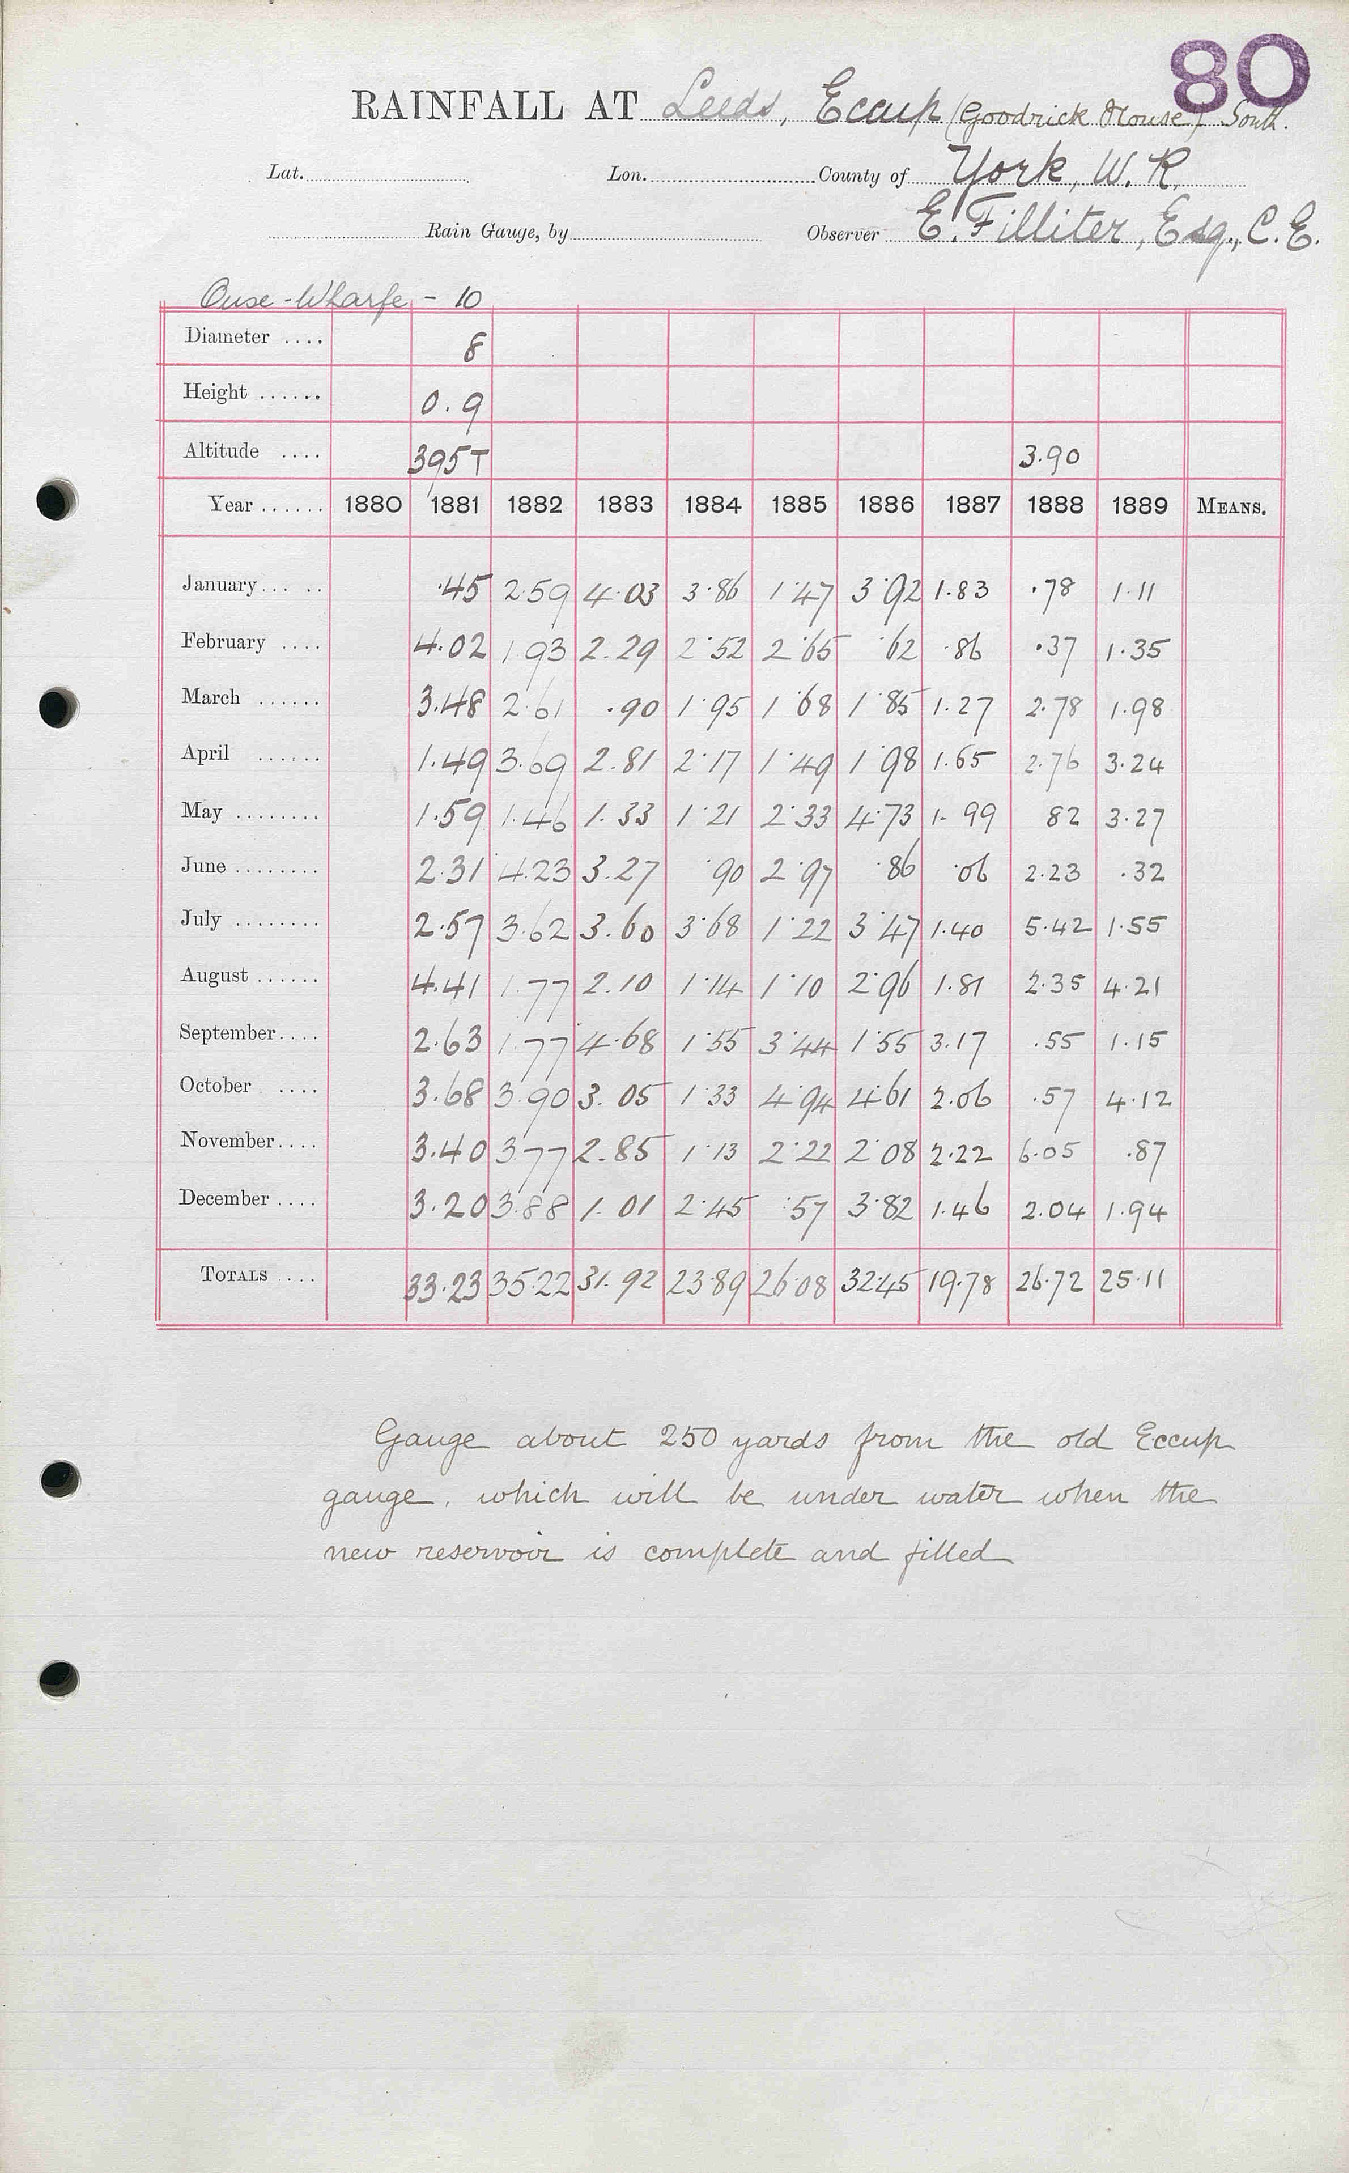 80
RAINFALL AT Leeds, Eccup (Goodrick House) South.
Lat. Lon. County of York, W. R.
Rain Gauge, by Observer E. Filliter, Esq., C. E.
Ouse-Wharfe - 10
Diameter .... 8
Height ...... 0.9
Altitude .... 395T 3.90
Year ...... 1880 1881 1882 1883 1884 1885 1886 1887 1888 1889 MEANS.
January... .. .45 2.59 4.03 3.86 1.47 3.92 1.83 .78 1.11
February .... 4.02 1.93 2.29 2.52 2.65 .62 .86 .37 1.35
March ...... 3.48 2.61 .90 1.95 1.68 1.85 1.27 2.78 1.98
April ...... 1.49 3.69 2.81 2.17 1.49 1.98 1.65 2.76 3.24
May ........ 1.59 1.46 1.33 1.21 2.33 4.73 1.99 82 3.27
June ........ 2.31 4.23 3.27 .90 2.97 .86 .06 2.23 .32
July ........ 2.57 3.62 3.60 3.68 1.22 3.47 1.40 5.42 1.55
August ...... 4.41 1.77 2.10 1.14 1.10 2.96 1.81 2.35 4.21
September.... 2.63 1.77 4.68 1.55 3.44 1.55 3.17 .55 1.15
October .... 3.68 3.90 3.05 1.33 4.94 4.61 2.06 .57 4.12
November.... 3.40 3.77 2.85 1.13 2.22 2.08 2.22 6.05 .87
December .... 3.20 3.88 1.01 2.45 .57 3.82 1.46 2.04 1.94
TOTALS .... 33.23 35.22 31.92 23.89 26.08 32.45 19.78 26.72 25.11
Gauge about 250 yards from the old Eccup
gauge, which will be under water when the
new reservoir is complete and filled